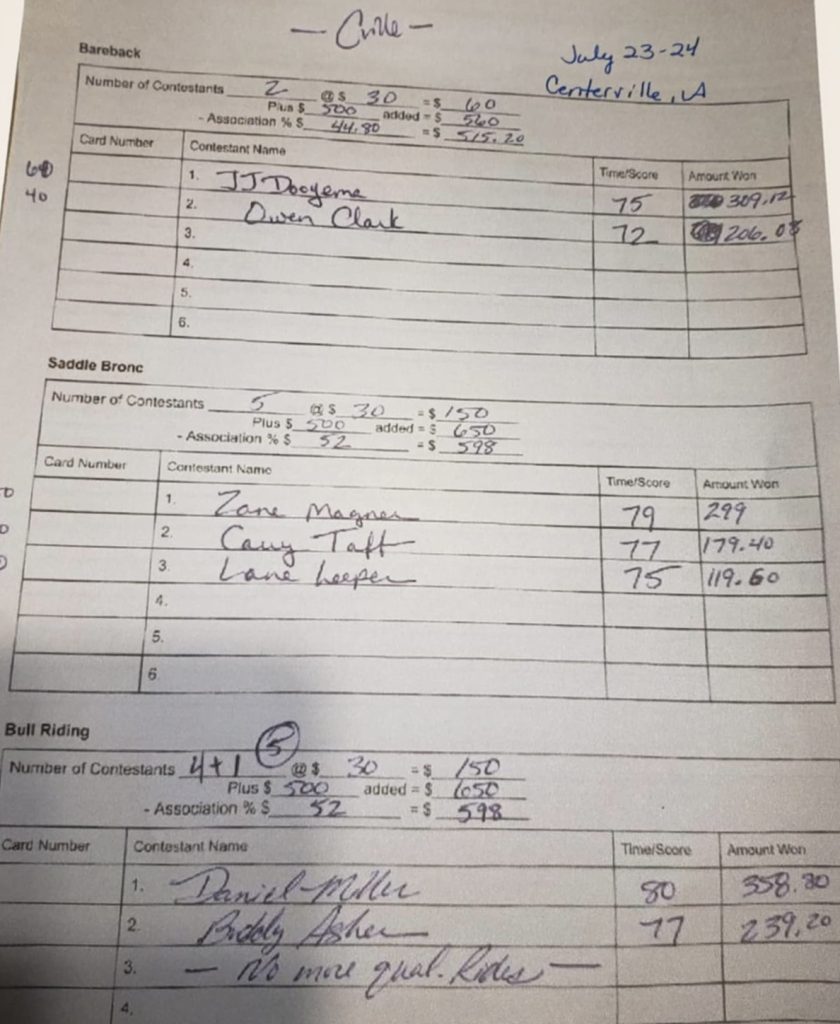 — Cville —
July 23-24
Centerville, IA
Bareback
Number of Contestants 2 @ $ 30 = $ 60
Plus $ 500 added = $ 560
- Association % $ 44.80 = $ 515.20
Card Number Contestant Name Time/Score Amount Won
60 1. JJ Dooyema 75 309.12
40 2. Owen Clark 72 206.08
3.
4.
5.
6.
Saddle Bronc
Number of Contestants 5 @ $ 30 = $ 150
Plus $ 500 added = $ 650
- Association % $ 52 = $ 598
Card Number Contestant Name Time/Score Amount Won
1. Zane Magner 79 299
2. Taft 77 179.40
3. Lane Leeper 75 119.60
4.
5.
6
Bull Riding
Number of Contestants 4+1 5 @ $ 30 = $ 150
Plus $ 500 added = $ 650
- Association % $ 52 = $ 598
Card Number Contestant Name Time/Score Amount Won
1. Daniel Miller 80 358.80
2 Buddy Asher 77 239.20
3. — No more qual. Rides —
4.